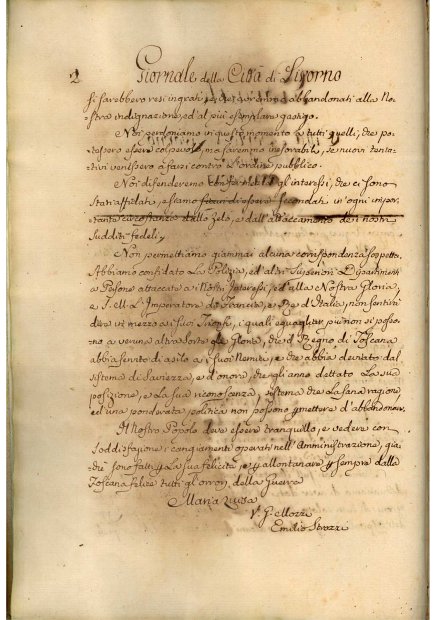 2 Giornale della Città di Livorno
si sarebbero resi ingrati, e che verranno abbandonati alla No-
stra indignazione, ed al più esemplare gastigo.
Noi perdoniamo in questo momento a tutti quelli, che po-
tessero essere colpevoli, e saremmo inesorabili, se nuovi tenta-
tivi venissero a farsi contro l'ordine pubblico.
Noi difenderemo gl'interessi, che ci sono
Stati affidati, e siamo sicuri di essere secondati in ogni impor-
tante circostanza dallo zelo, e dall'attaccamento dei nostri
Sudditi fedeli.
Non permettiamo giammai alcuna corrispondenza sospetta.
Abbiamo confidato La Polizia, ed altri Superiori Dipartimenti
a Persone attaccate ai Nostri Interessi, ed alla Nostra Gloria,
e S. M. L'Imperatore di Francia, e Re d'Italia, non sentirà
dire in mezzo a suoi Trionfi, i quali eguagliar più non si posso-
no a veruna altra sorte di Gloria, che il Regno di Toscana
abbia servito di asilo a i suoi Nemici, e che abbia deviato dal
sistema di Saviezza, e d'onore, che gli anno dettato La sua
posizione, e La sua riconoscenza, sistema che La sana ragione,
ed una ponderata politica non possono permettere d'abbandonare.
Il Nostro Popolo deve essere tranquillo, e vedere con
Soddisfazione i cangiamenti operati nell'Amministrazione, gia-
chè sono fatti p la sua felicità, e p allontanare p sempre dalla
Toscana felice tutti gli orrori della Guerra
Maria Luisa
V. G.
Emilio Strozzi